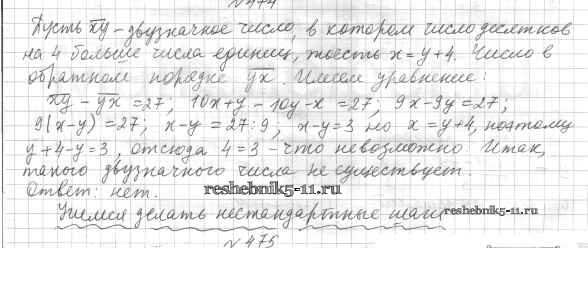 N 474
Пусть xy - двузначное число, в котором число десятков
на 4 больше числа единиц, то есть x = y + 4. Число в
обратном порядке yx. Имеем уравнение:
xy - yx = 27; 10x + y - 10y - x = 27; 9x - 9y = 27;
9(x-y) = 27; x-y = 27:9; x-y=3 но x = y+4, поэтому
y+4-y=3, отсюда 4=3 - что невозможно. Итак,
такого двузначного числа не существует.
Ответ: нет.
reshebnik5-11.ru
Учимся делать нестандартные шаги
reshebnik5-11.ru
N 475